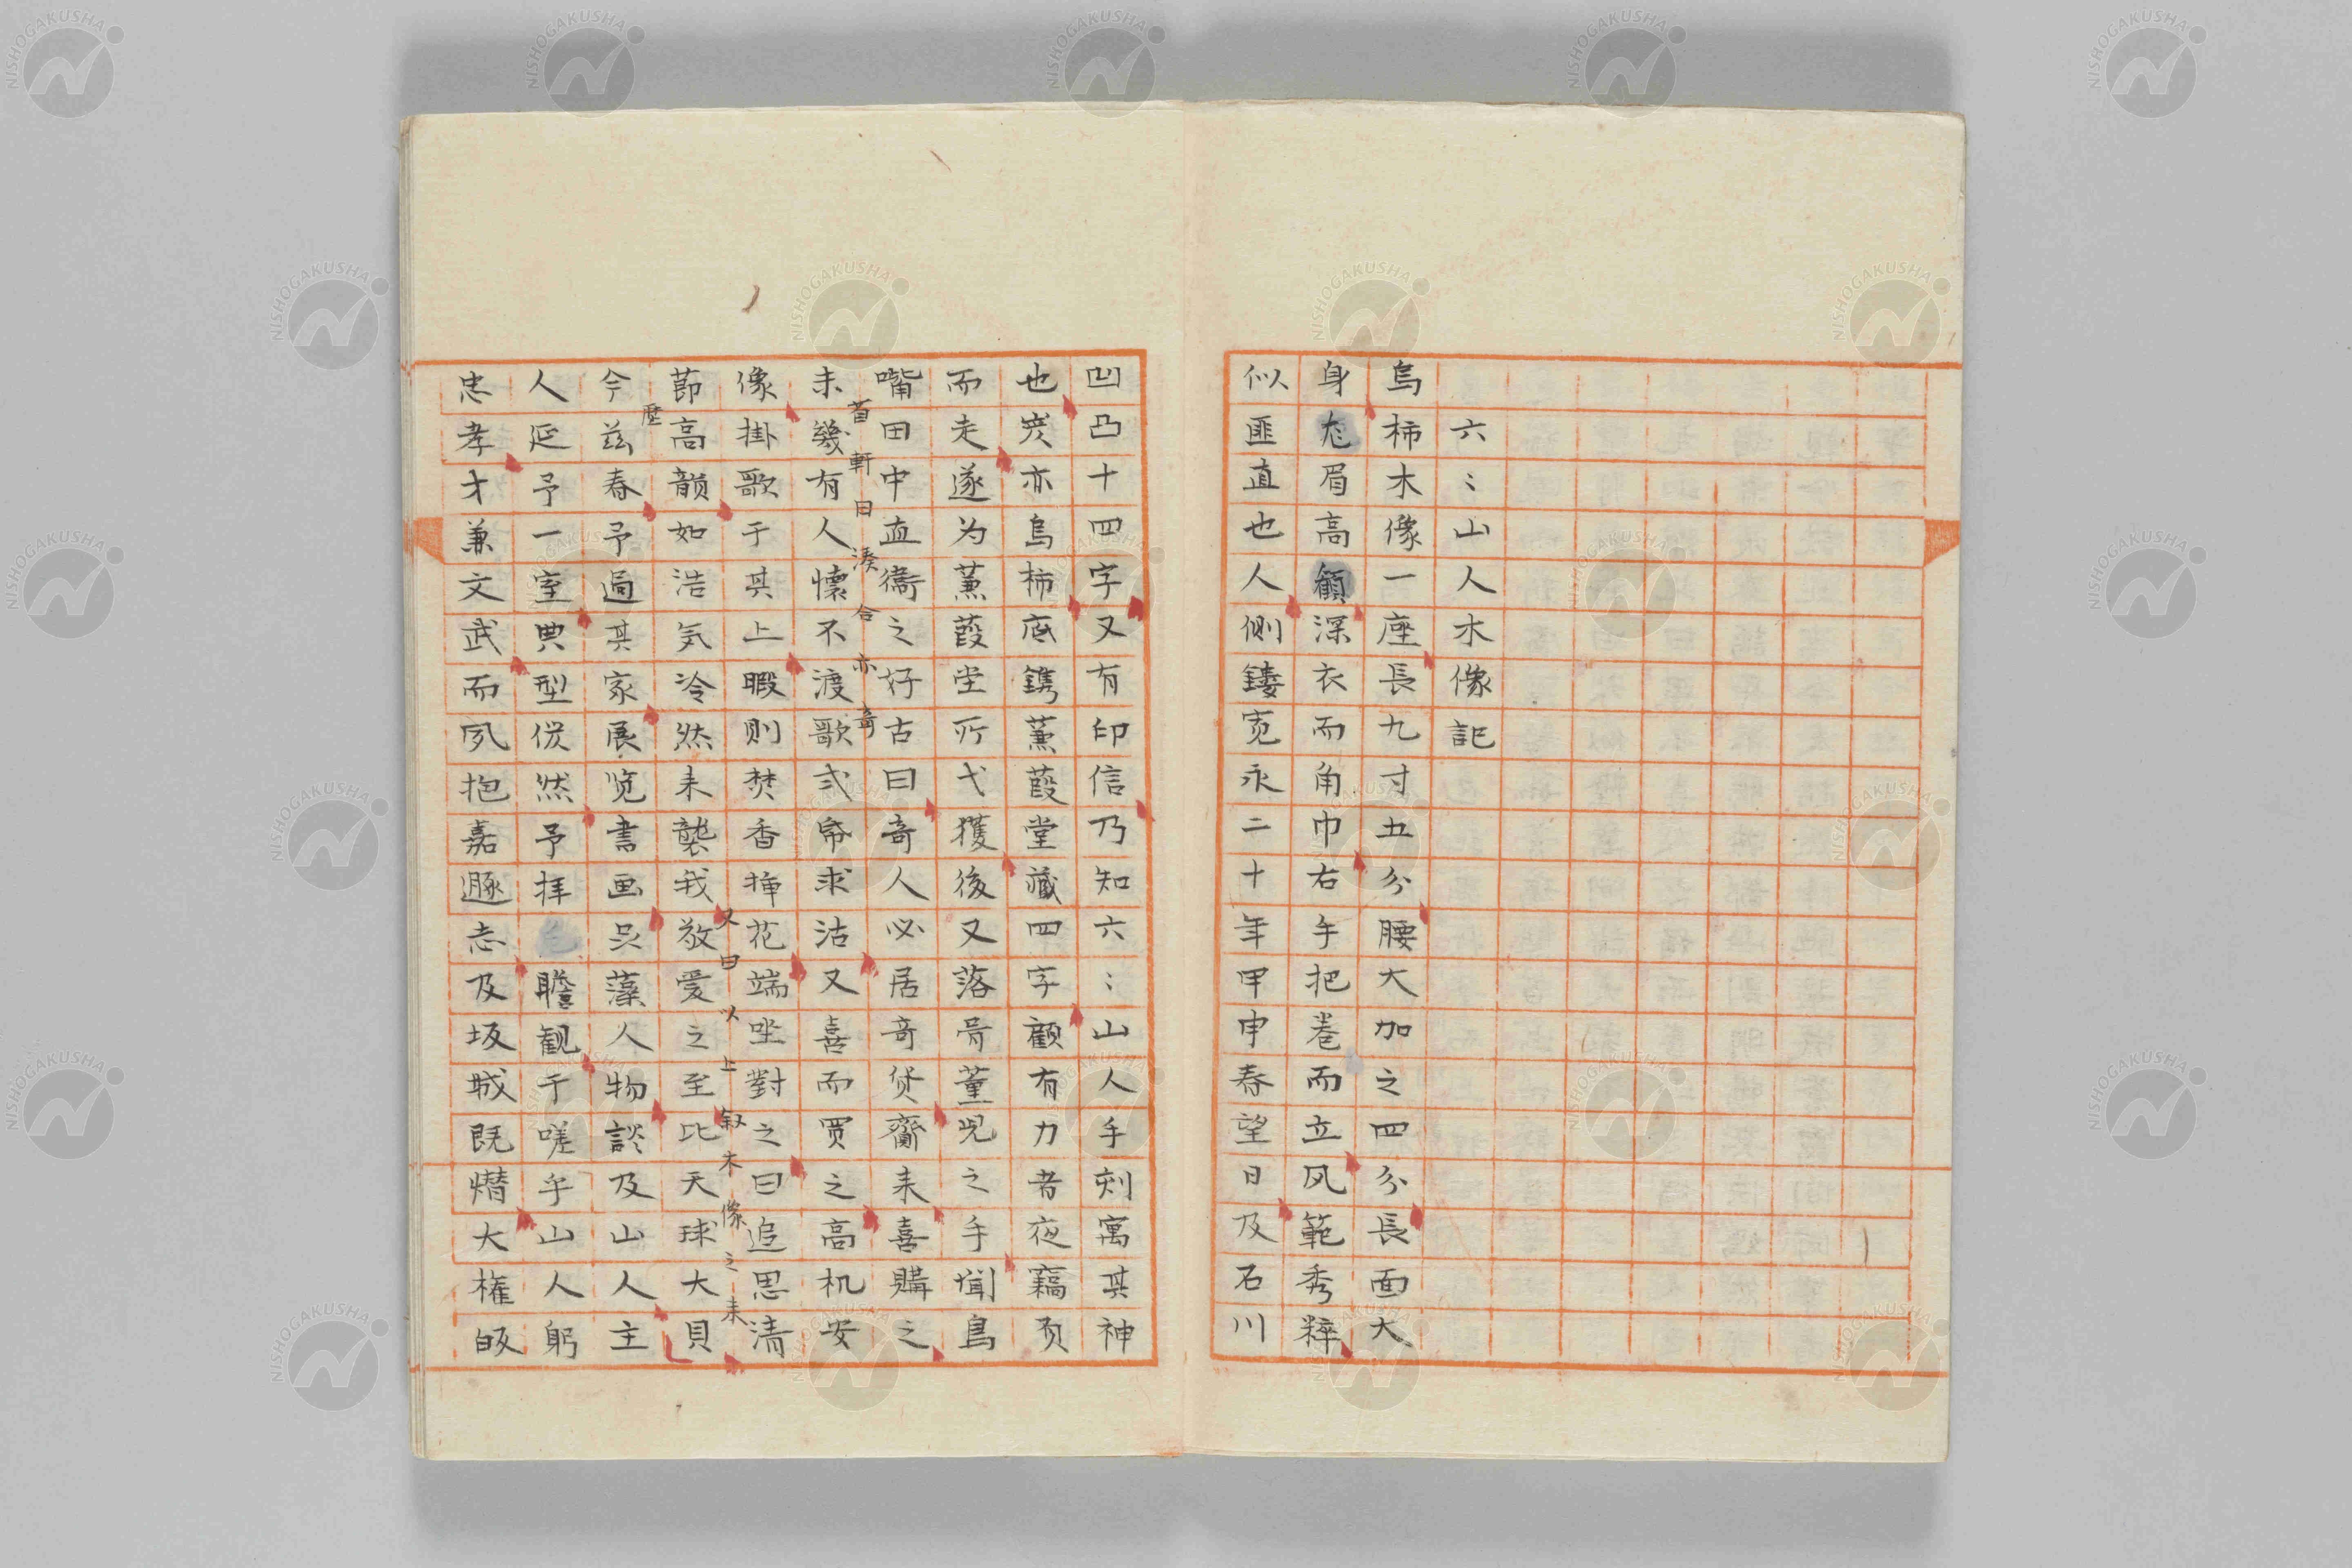 六〻山人木像記
烏柿木像一座長九寸五分腰大加之四分長面大
身尨眉高顴深衣而角巾右手把巻而立風範秀粹
似匪直也人側鏤寛永二十年甲申春望日及石川
凹凸十四字又有印信乃知六〻山人手刻寓其神
也炭亦烏柿底鐫蒹葭堂蔵四字顧有力者夜竊負
而走遂为蒹葭堂所弋獲後又落骨董児之手聞鳥
嘴田中直衞之好古曰竒人必居竒貨齎来喜購之
首軒曰湊合亦奇
未幾有人懐不渡歌弍帋求沽又喜而買之高机安
像掛歌于其上暇则焚香揷花端坐對之曰追思清
節高韻如浩気冷然来襲我敬爱之至比天球大貝
又曰以上叙木像之来歴
今茲春予過其家展览書画品藻人物談及山人主
人延予一室典型俨然予拝瞻観于嗟乎山人躬
忠孝才兼文武而夙抱嘉遯志及坂城既熸大権皈
NISHOGAKUSHA